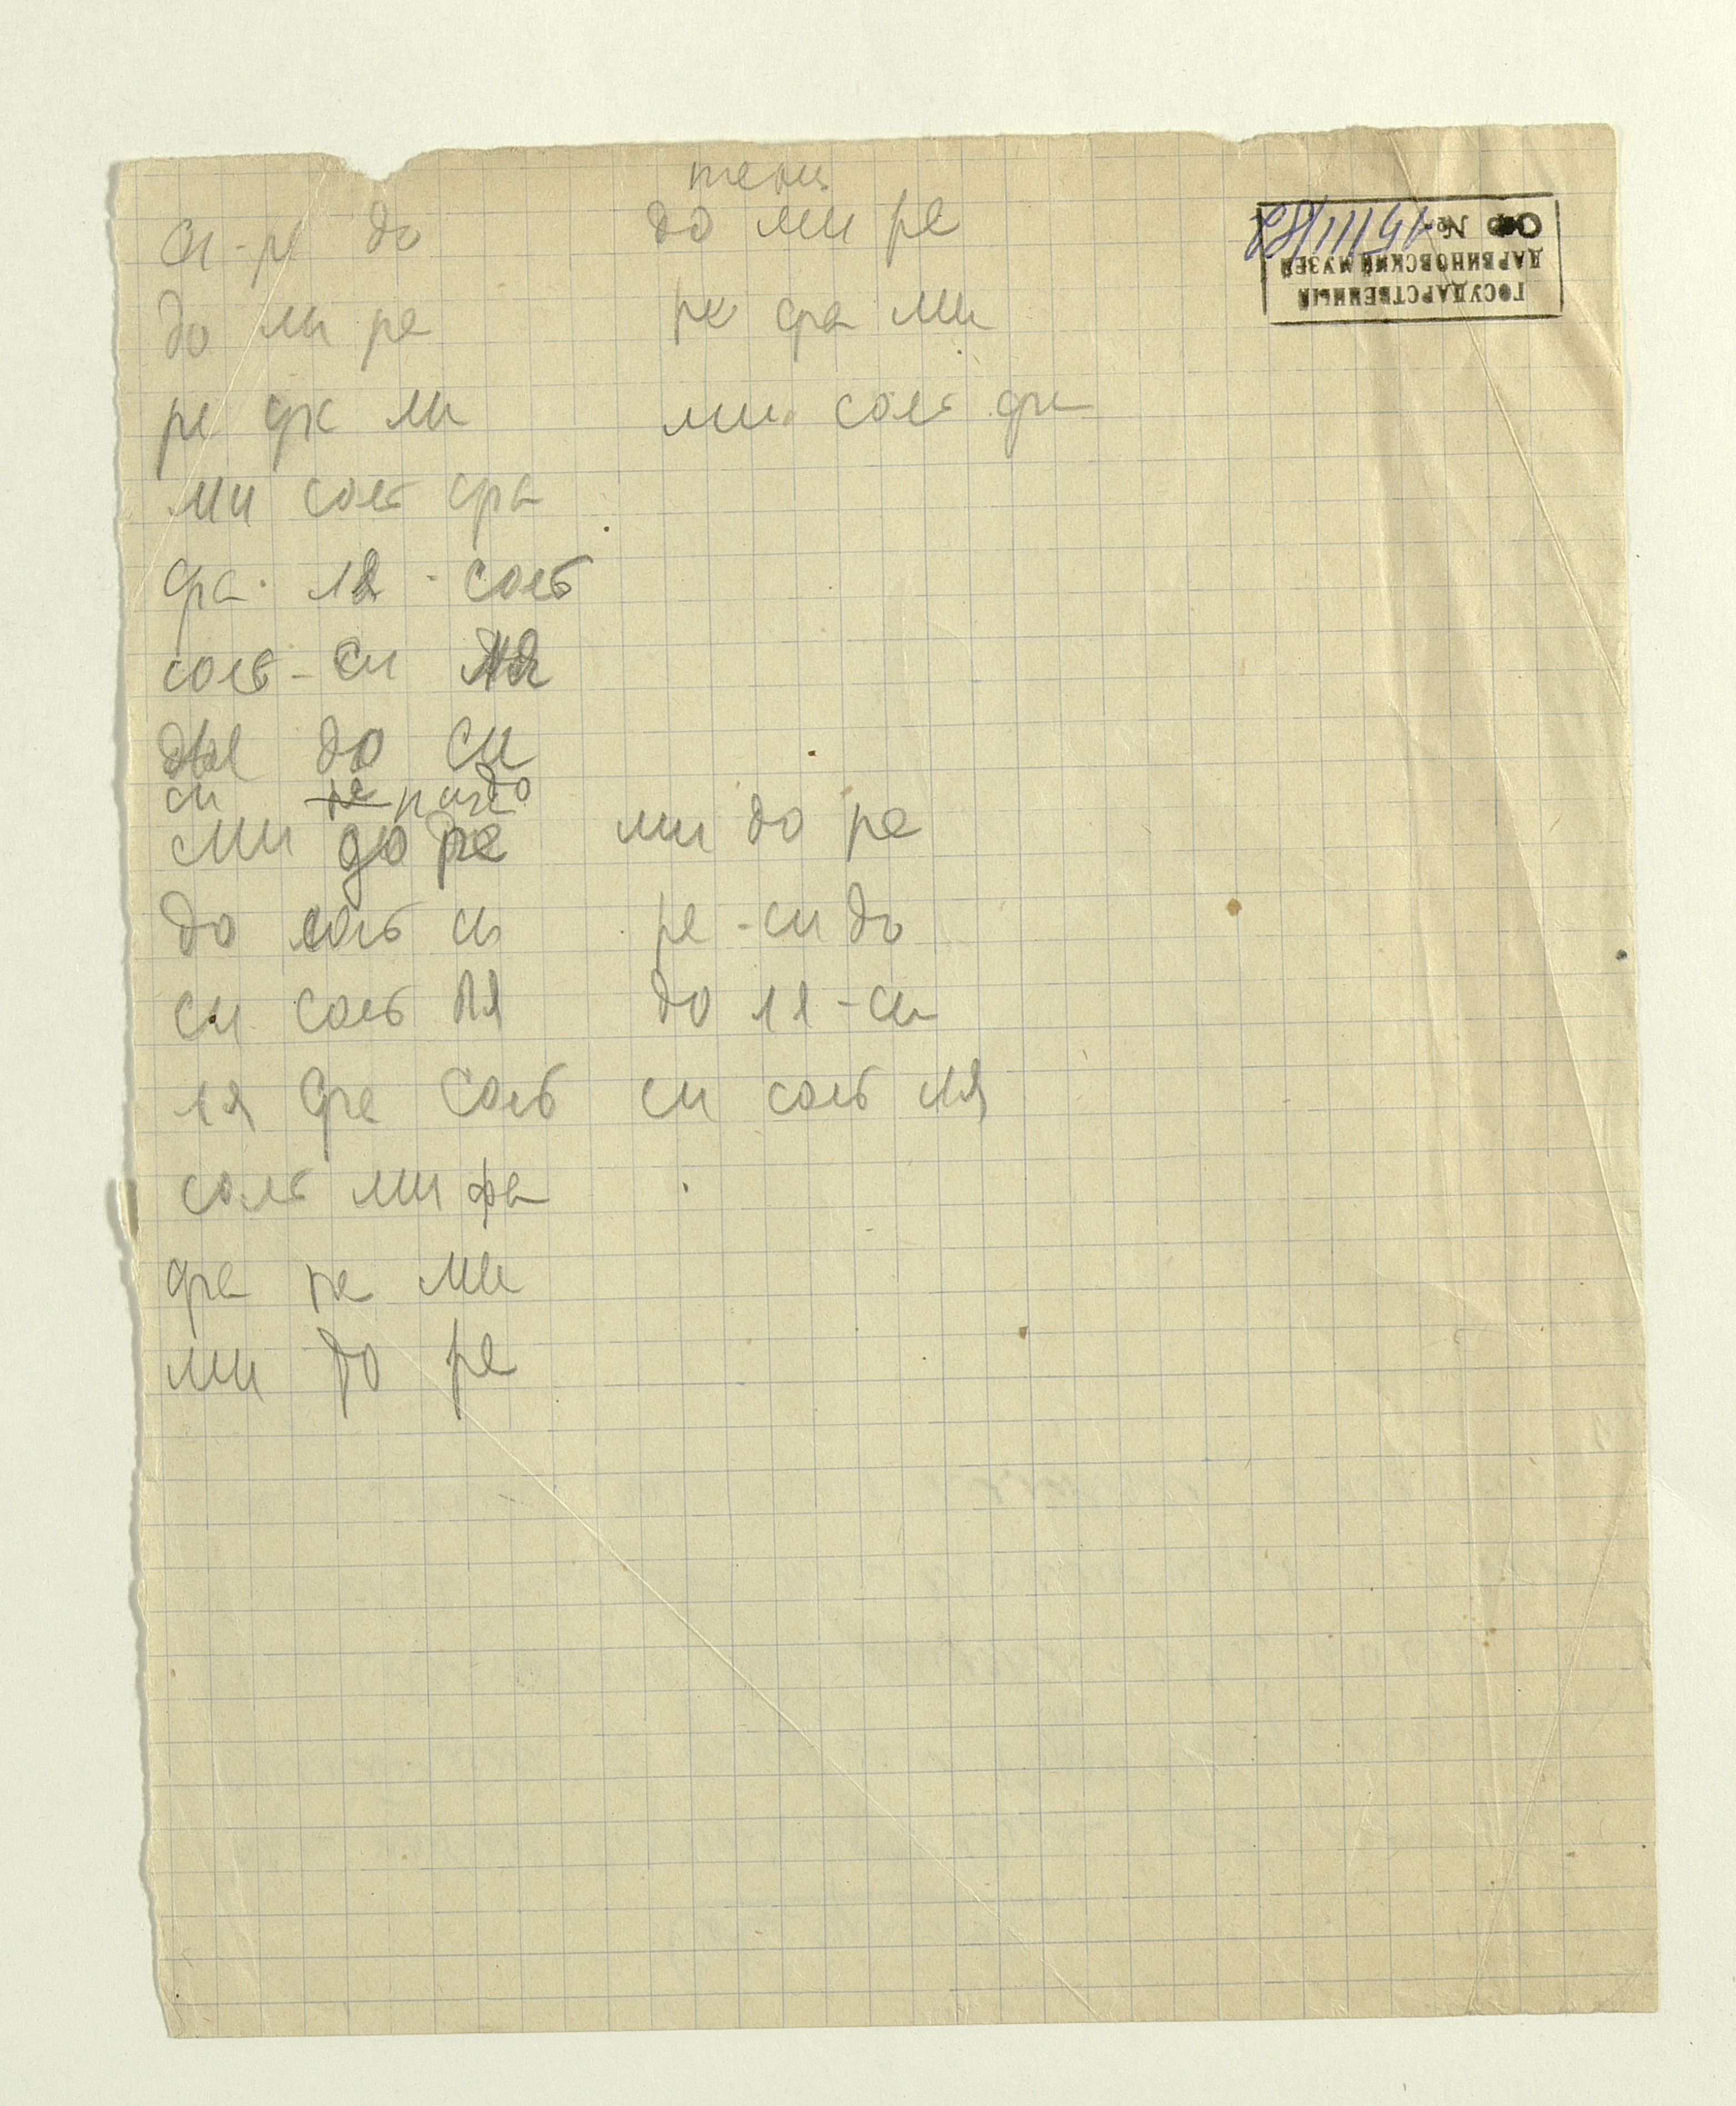 си - ре до
до ми ре
ре фа ми
ми соль фа
фа - ля - соль
соль - си ля
до си
си ре
ми до ре
до соль си
си соль ля
ля фа соль
соль ми фа
фа ре ми
ми до ре
до ми ре
ре фа ми
ми соль фа
ми до ре
ре - си до
до ля - си
си соль ля
ГОСУДАРСТВЕННЫЙ
ДАРВИНОВСКИЙ МУЗЕЙ
ОФ №